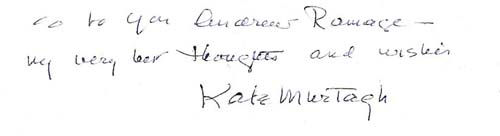 to you Andrew Ramage –
my very best thoughts and wishes
Kate Murtagh